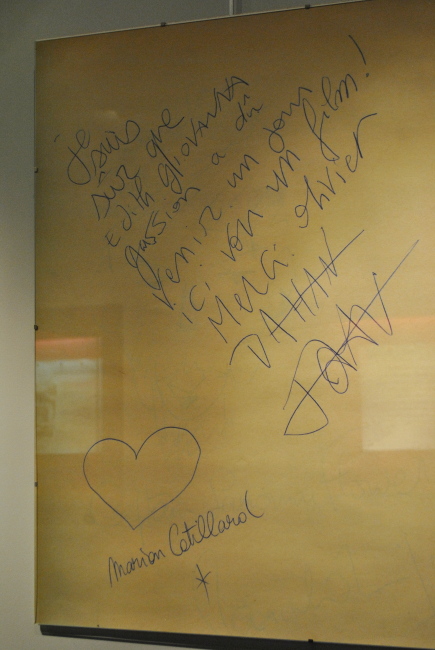 je suis
sûr que
Edith giovanna
gassion a dû
venir un jour
ici voir un film!
Merci. olivier
DAHAN
Marion Cotillard